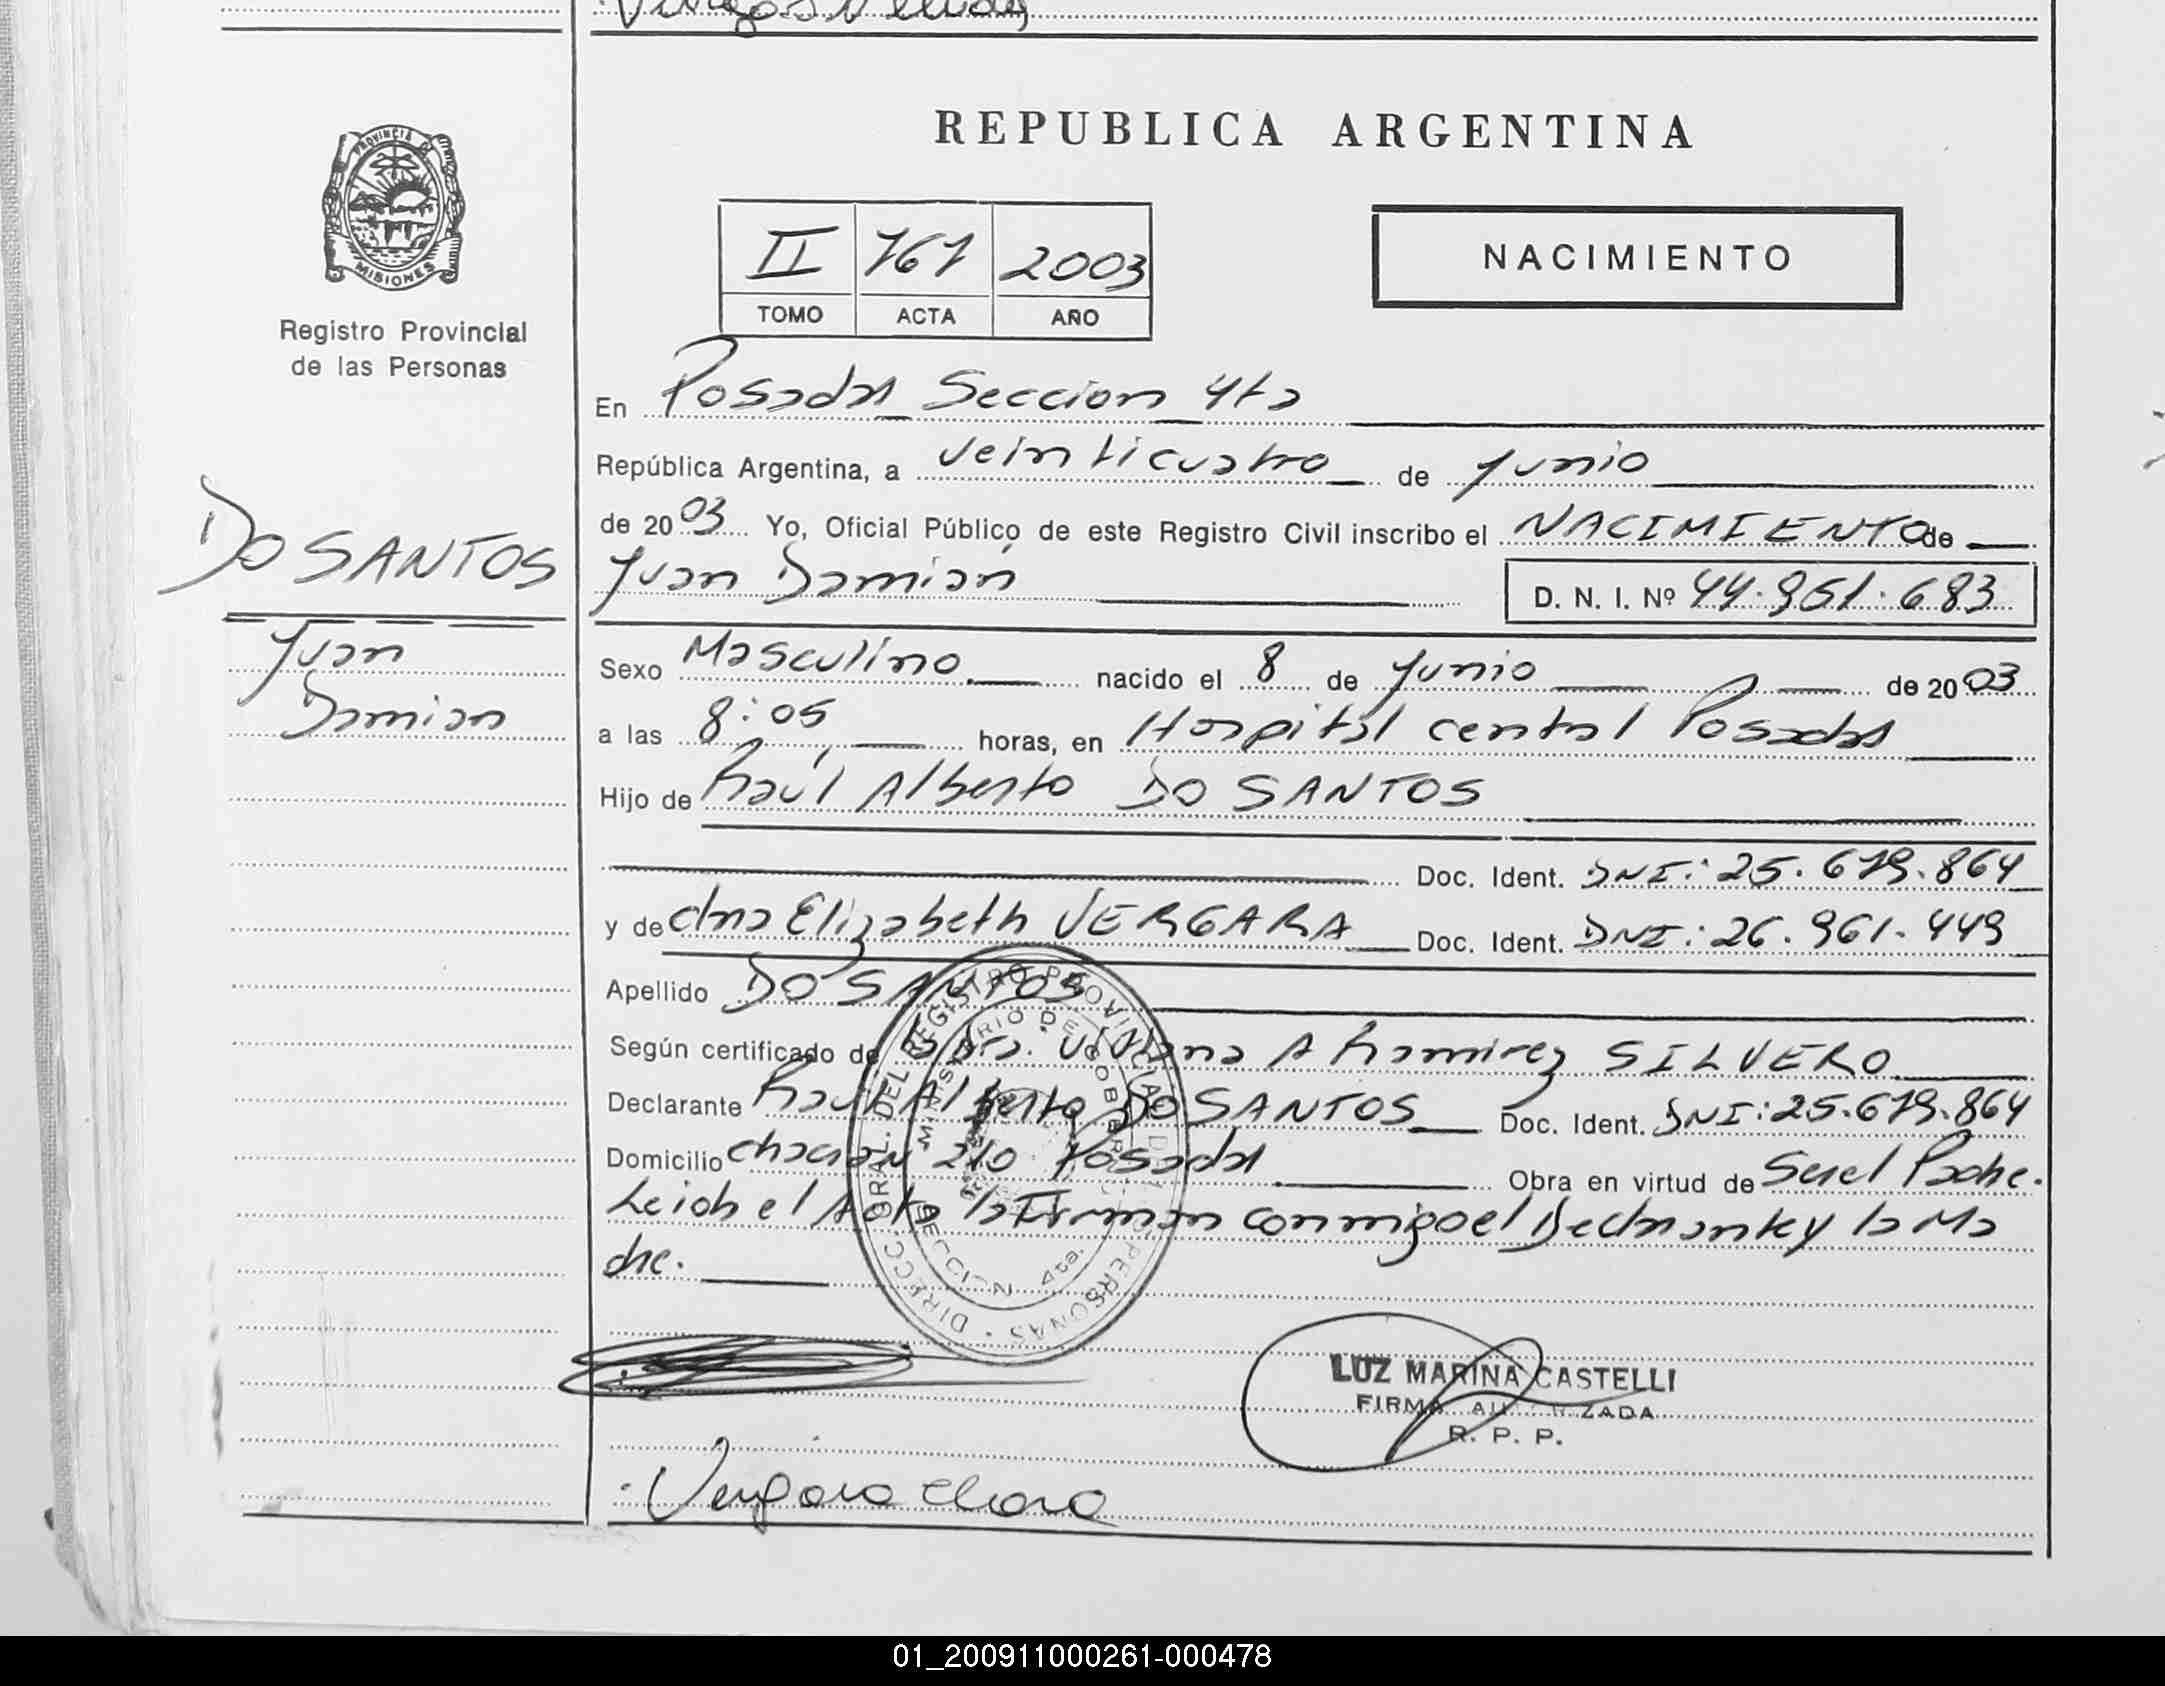 REPUBLICA ARGENTINA
PROVINCIA DE
MISIONES
Registro Provincial
de las Personas
II 767 2003
TOMO ACTA AÑO
NACIMIENTO
En Posadas Seccion 4ta
República Argentina, a veinticuatro de Junio
de 2003 Yo, Oficial Público de este Registro Civil inscribo el NACIMIENTO de
DO SANTOS
Juan Damián D. N. I. Nº 44.961.683
Juan
Damian
Sexo Masculino nacido el 8 de Junio de 2003
a las 8:05 horas, en Hospital central Posadas
Hijo de Raúl Alberto DO SANTOS
Doc. Ident. DNI: 25.679.864
y de Elizabeth VERGARA Doc. Ident. DNI: 26.961.449
Apellido DO SANTOS
Según certificado de la Dra. A Ramirez SILVERO
Declarante Raúl Alberto DO SANTOS Doc. Ident. DNI: 25.679.864
Domicilio 210 Posadas Obra en virtud de Ser el Padre.
Leida el Acta la Firman conmigo el Declarante y la Ma
dre.
LUZ MARINA CASTELLI
FIRMA AUTORIZADA
R. P. P.
Vergara
01_200911000261-000478